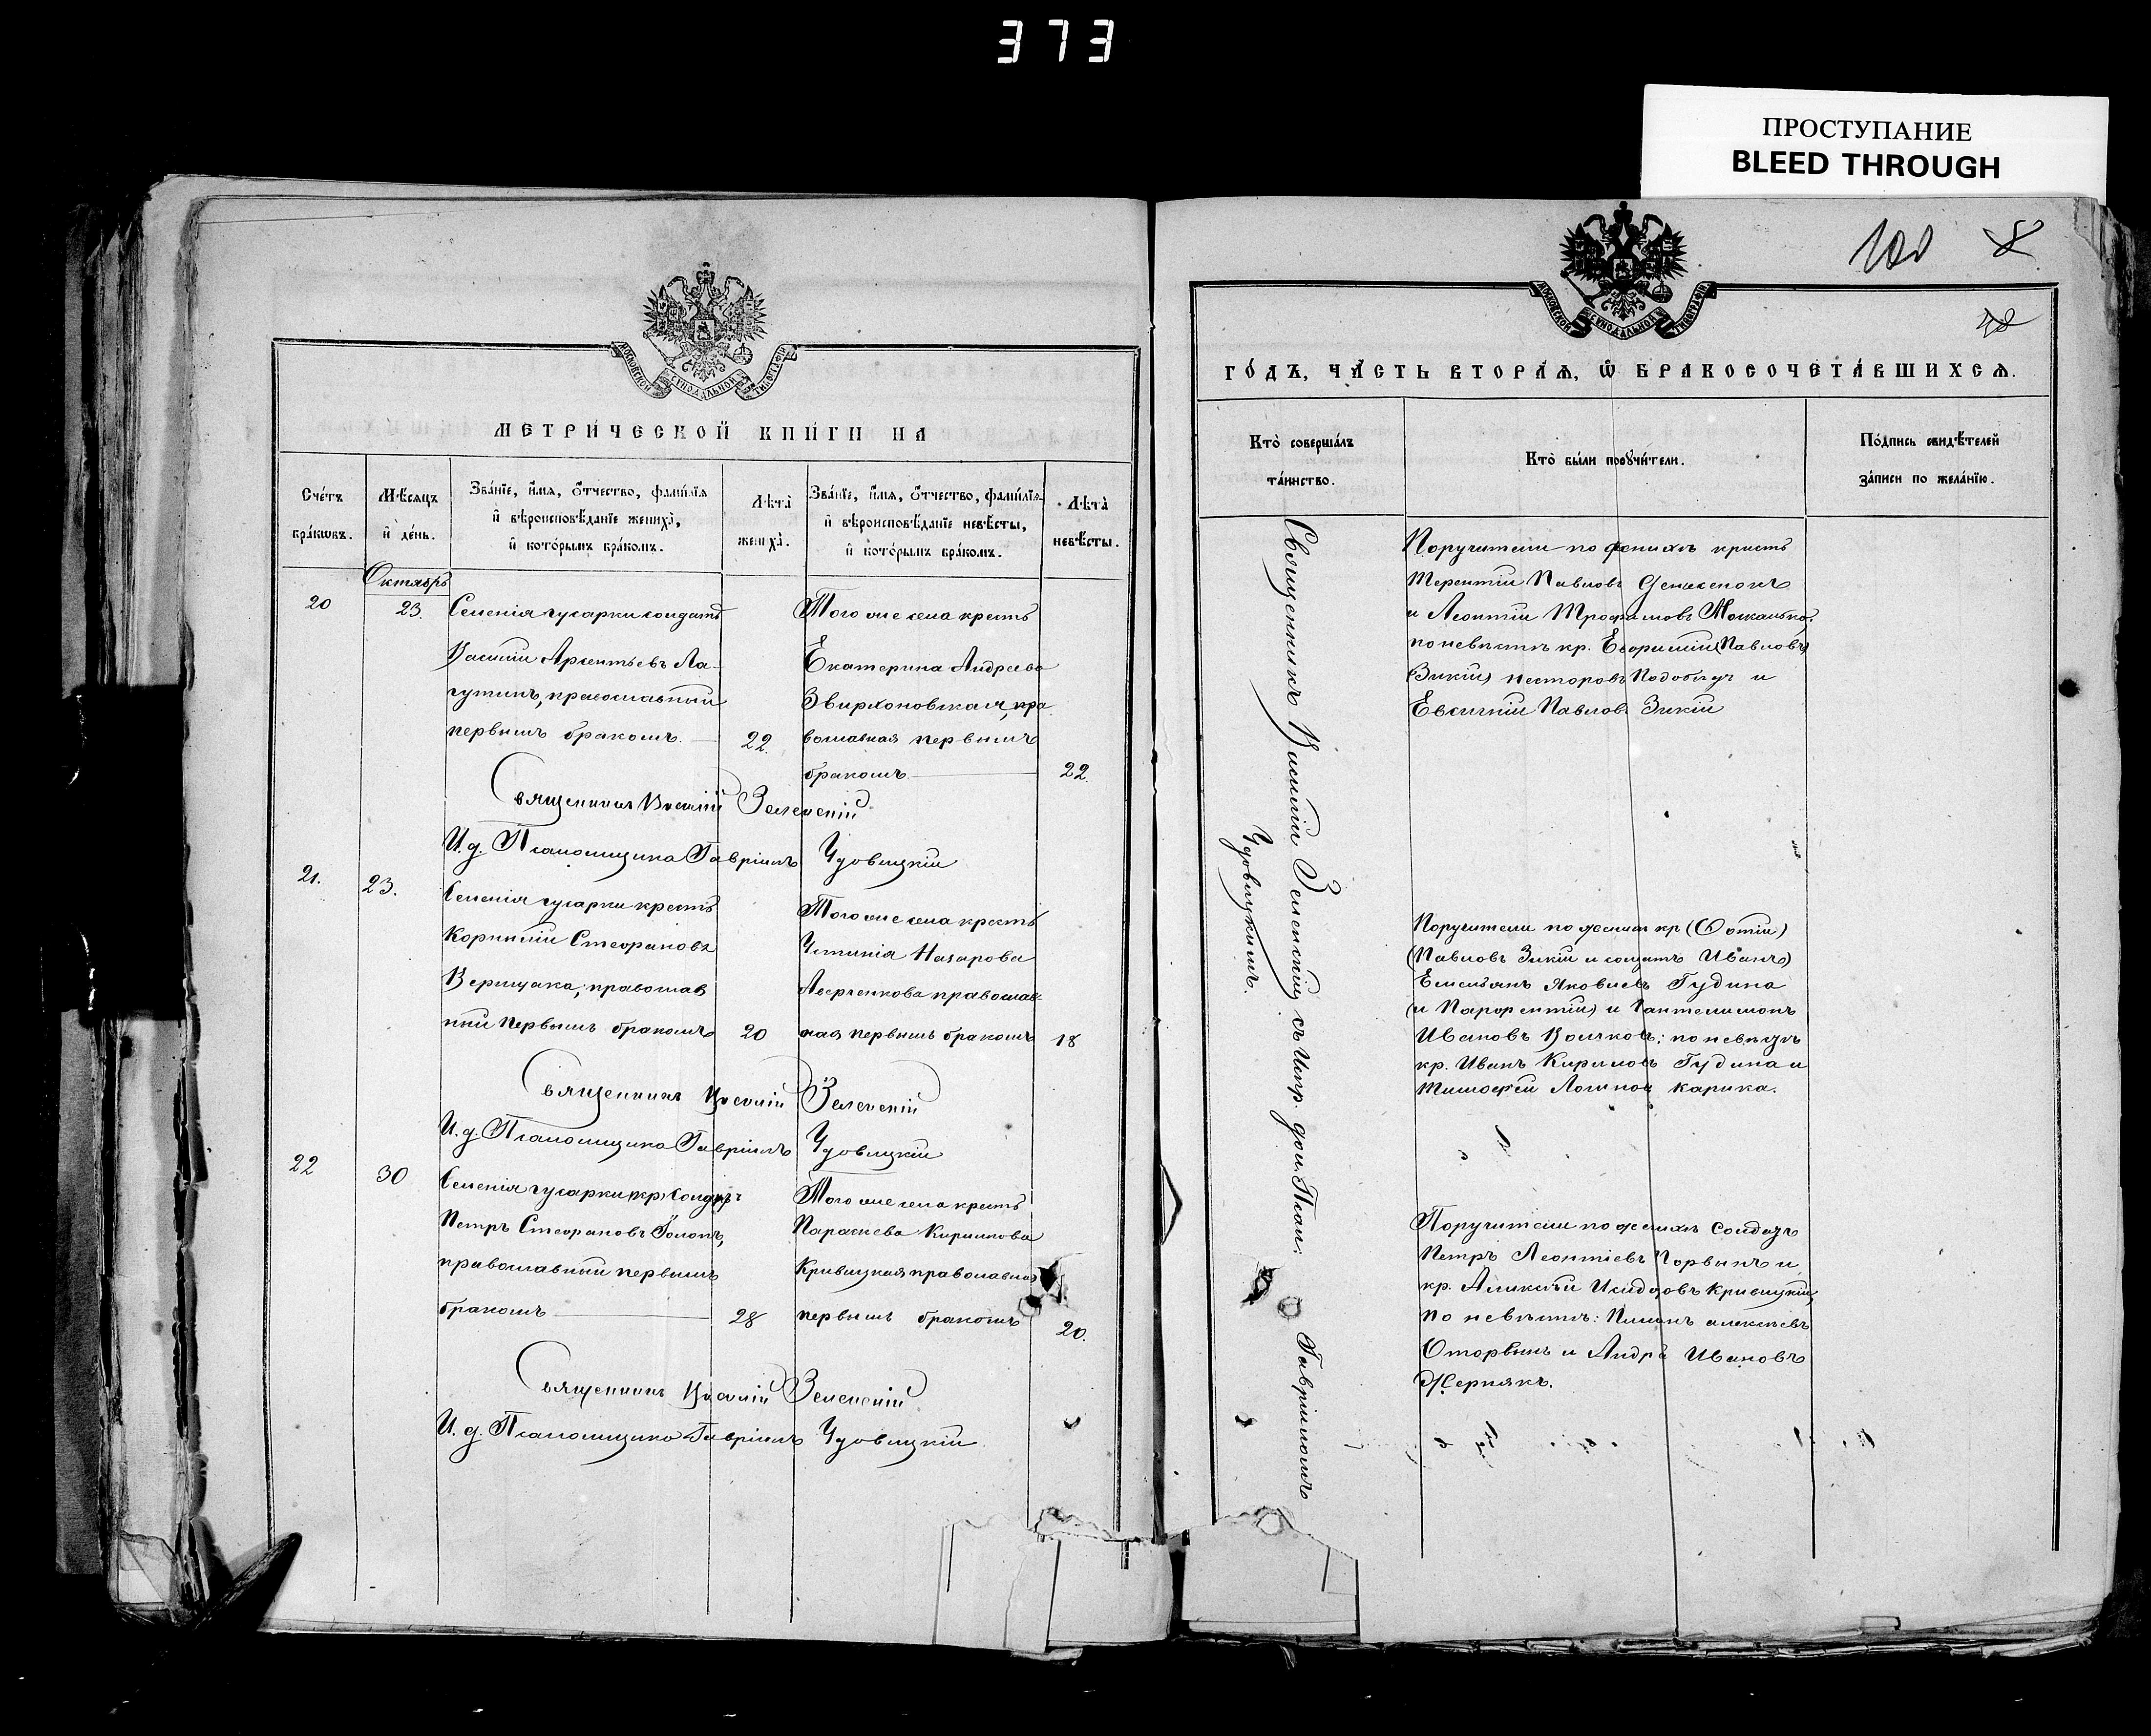 373
ПРОСТУПАНИЕ
BLEED THROUGH
МОСКОВСКОЙ СѴНОДАЛЬНОЙ ТИПОГРАФІИ
МЕТРИ́ЧЕСКОЙ КНИ́ГИ НА
Сче́тъ бра́кѡвъ.
Мѣ́сяцъ и де́нь.
Зва́нїе, и́мя, ѻ́тчество, фами́лїя
и вѣроисповѣ́данїе жениха̀,
и кото́рымъ бра́комъ.
Лѣта̀ жениха̀.
Зва́нїе, и́мя, ѻ́тчество, фами́лїя
и вѣроисповѣ́данїе невѣ́сты,
и кото́рымъ бра́комъ.
Лѣта̀ невѣ́сты.
Октябрь
20
23.
Селенія гусарки солдатъ
Василій Арсентьевъ Ла-
гутинъ, православный
первымъ бракомъ.
22.
Того же села кресть
Екатерина Андреева
пра
вославная первымъ
бракомъ
22.
Священникъ Василій Зеленскій
И. д. Псаломщика Гавріилъ Удовицкій
21.
23.
Селенія гусарки кресть
Корнилій Стефановъ
православ
ный первымъ бракомъ
20
Того же села кресть
Устинія Назарова
православ
ная первымъ бракомъ
18
Священникъ Василій Зеленскій
И. д. Псаломщика Гавріилъ Удовицкій
22
30
Селенія гусарки (кр) солдатъ
Петръ Стефановъ
православный первымъ
бракомъ
28
Того же села кресть
Параскева Кирилова
Кривицкая православная
первымъ бракомъ
20.
Священникъ Василій Зеленскій
И. д. Псаломщика Гавріилъ Удовицкій
100 8
МОСКОВСКОЙ СѴНОДАЛЬНОЙ ТИПОГРАФІИ
ГО́ДЪ, ЧА́СТЬ ВТОРА́Я, Ѡ БРАКОСОЧЕТА́ВШИХСЯ.
Кто̀ соверша́лъ
та́инство.
Кто̀ бы́ли порꙋчи́тели.
По́дпись свидѣ́телей
за́писи по жела́нїю.
Священникъ Василій Зеленскій съ Испр. дол. Псал. Гавріиломъ
Удовицкимъ.
Поручители по женихѣ крестъ
Терентій Павловъ
и Леонтій Трофимовъ
по невѣстѣ кр. (Павловъ
Зикій) Несторовъ и
Евсигній Павловъ Зикій
Поручители по женихѣ кр (Фотій)
(Павловъ Зикій и солдатъ Иванъ)
Емельянъ Яковлевъ Гудина
и Пантелимонъ
Ивановъ Волчковъ; по невѣстѣ
кр. Иванъ Кириловъ Гудина и
Тимофей Логиновъ Карика.
Поручители по женихѣ солдатъ
Петръ Леонтіевъ и
кр. Алексѣй Исидоровъ Кривицкій,
по невѣстѣ: Алексѣевъ
и Андрей Ивановъ